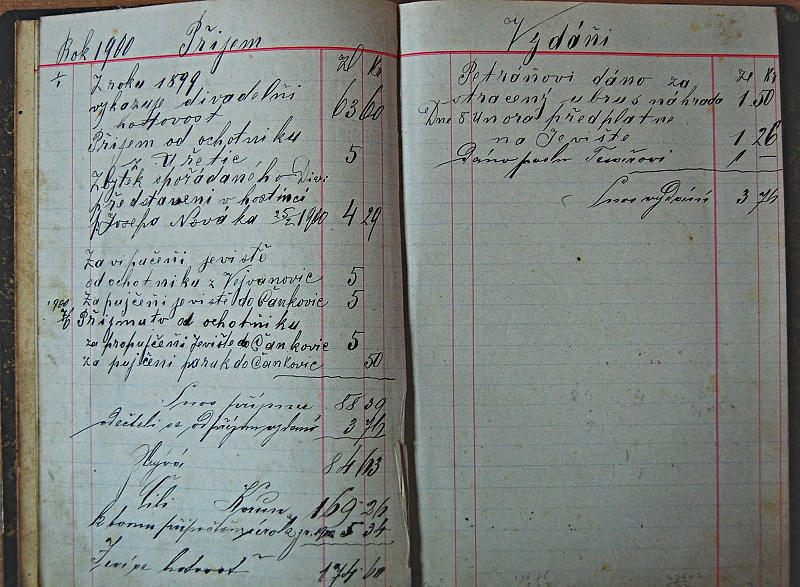 Rok 1900 Příjem
Zl Kr
1/1 Z roku 1899
vykazuje divadelňi
hotovost 63 60
Přijem od ochotniku
z Uřetic 5
Zbytek spořádaného Divi
představeni v hostinci
p Josefa Nováka 1900 4 29
Za vipučeňi jevistě
od ochotniku z Vejvanovic 5
Za pujčeňi jevistě do Čankovic 5
1900 Přijmuto od ochotňiku
za propujčeňi Jeviště do Čankovic 5
Za pujčeni paruk do Čankovic 50
Snos příjmu 88 39
odečteli se od příjmu vydaní 3 76
Zbývá 84 63
Čili Korun 169 26
k tomu 5 34
Jeví se hotovost 174 60
Výdáňi
Zl Kr
Petráňovi dáno za
stracený ubrus náhrada 1 50
Dne 8 unora předplatne
na Jeviště 1 26
Dáno 1 —
Snos vydání 3 76